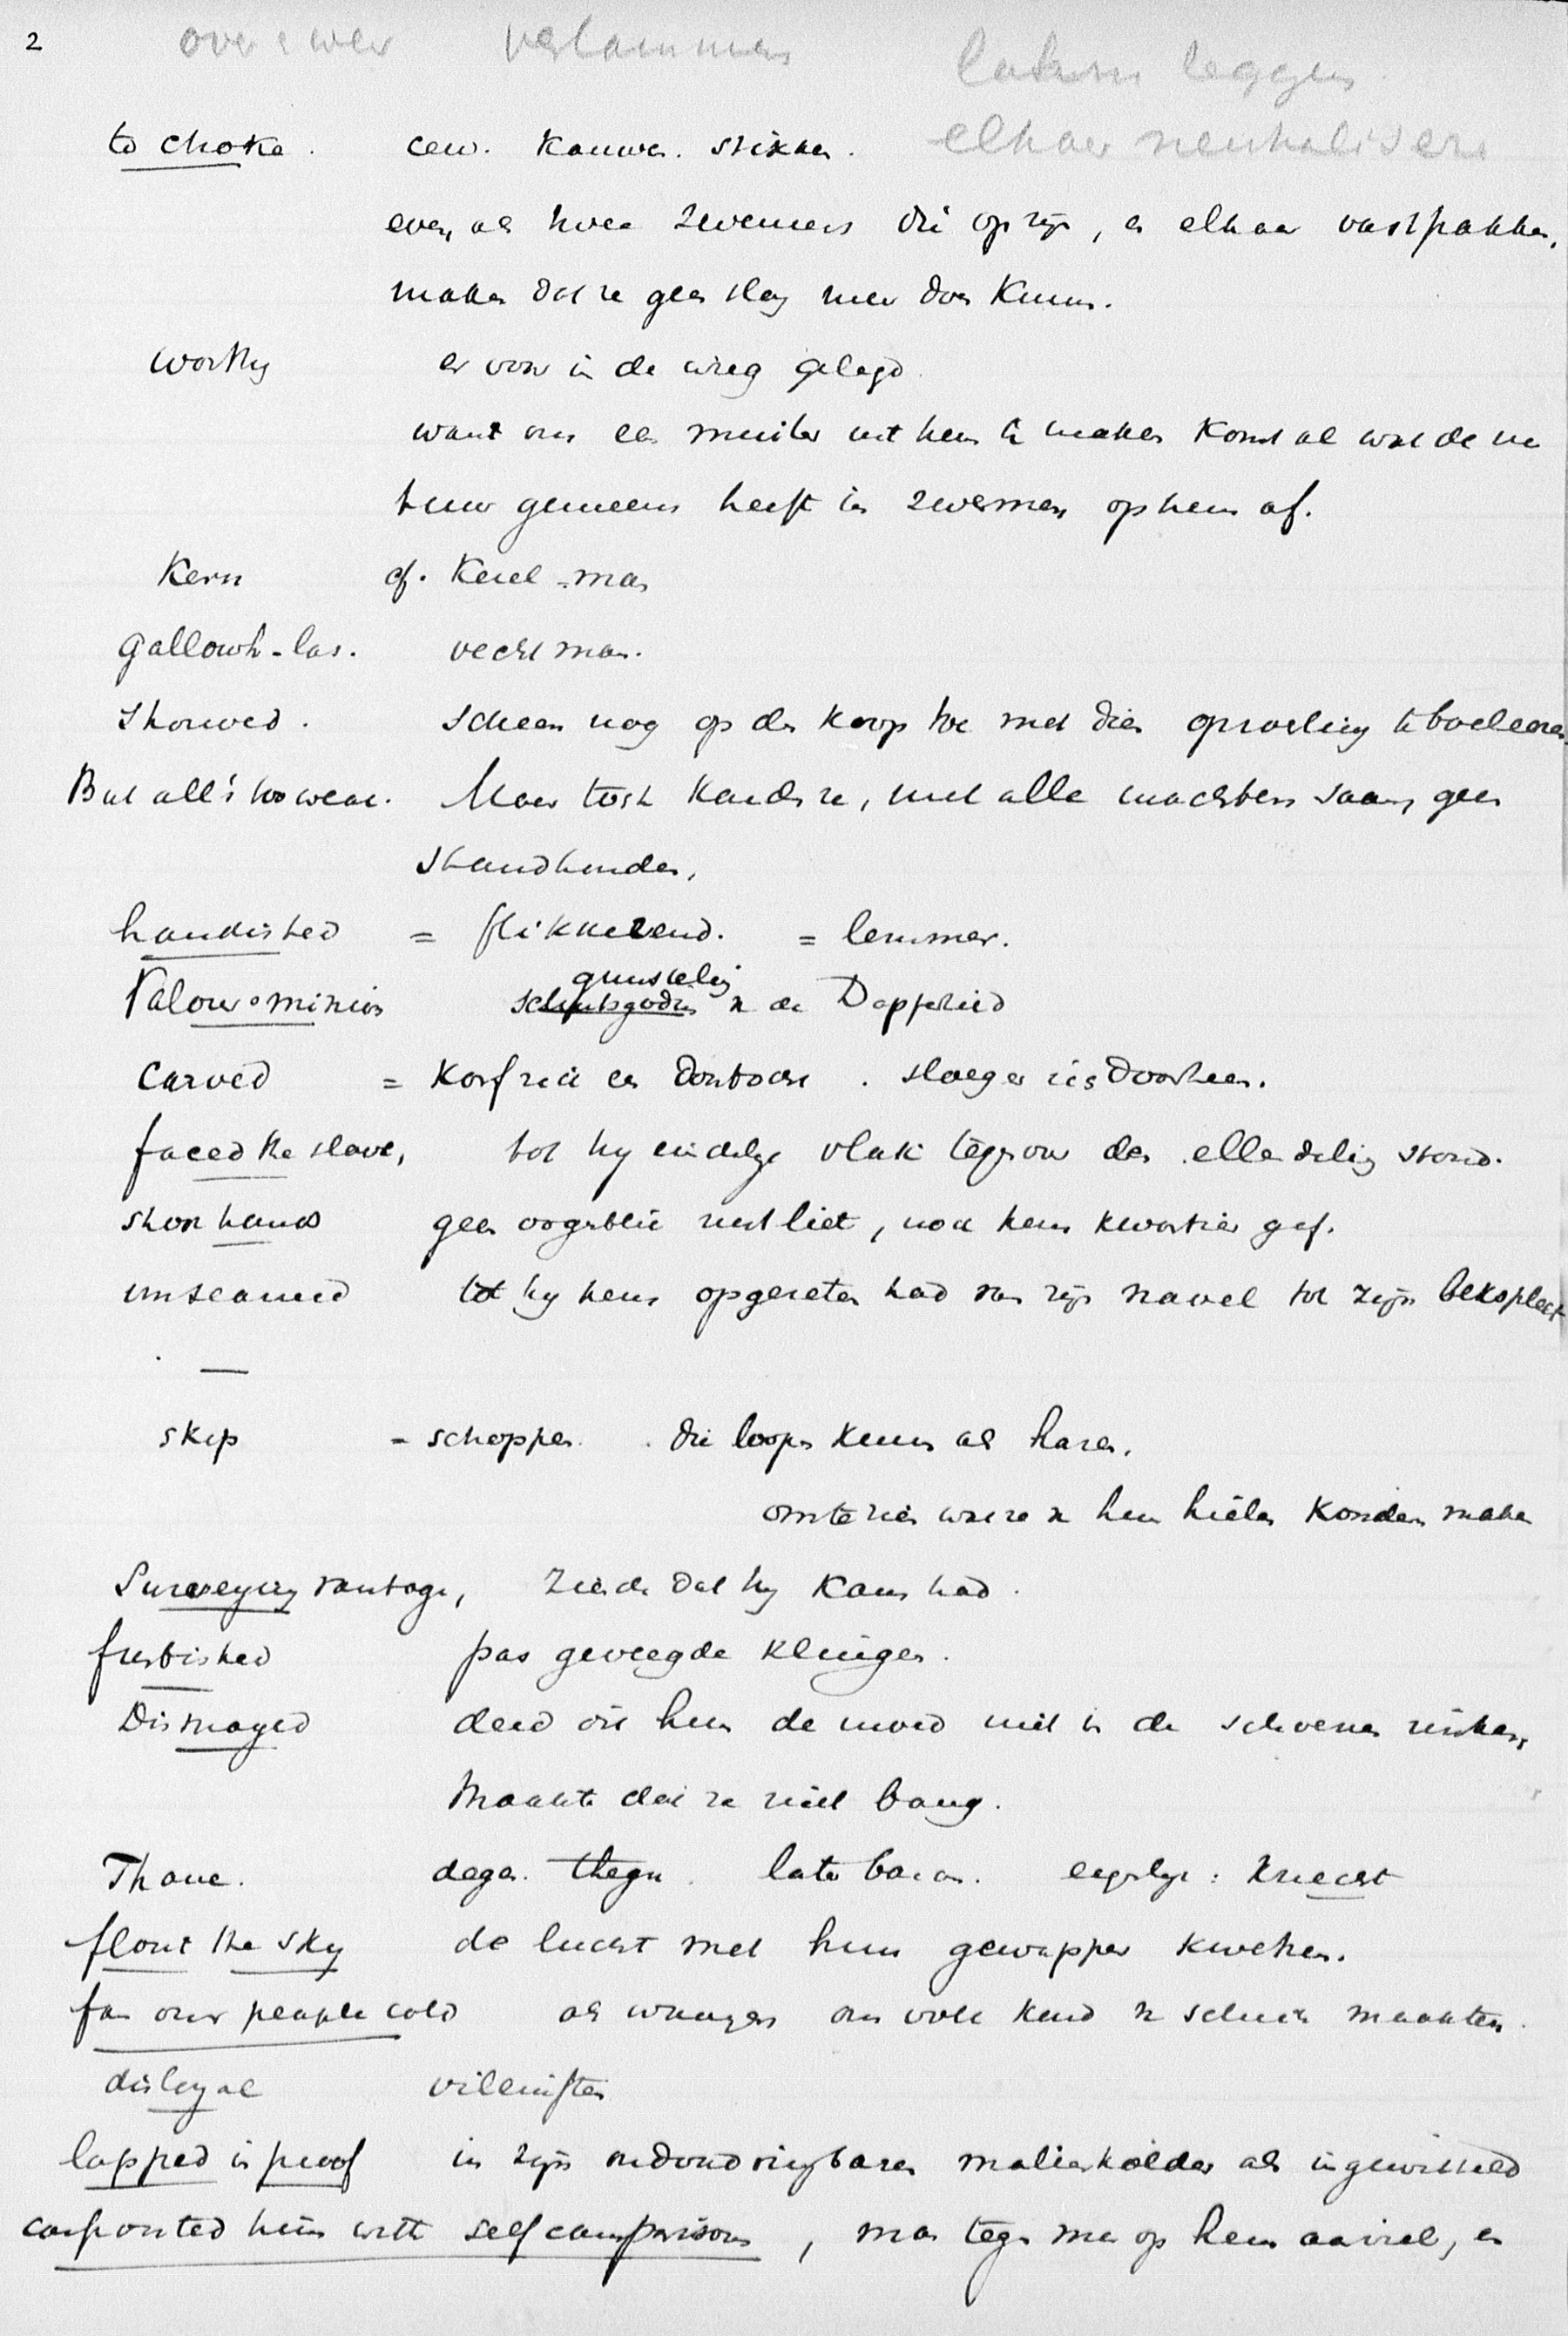 2 over & weer verlammen lakens leggen
to choke. cew. Kauwen. stikken. elkaer neutraliseren
even als twee zwemmers die op zijn, en elkaar vastpakken,
maken dat ze geen slag meer doen Kunnen.
worthy er voor in de wieg gelegd.
want om een muiter uit hem te maken Komt al wat de na
tuur gemeens heeft in zwermen op hem af.
Kern cf. Kerel - man
gallowh-las. vechtman.
Showed. scheen nog op den koop toe met dien oproerling te boeleeren.
But all's too weak. Maar toch Konden ze, met alle machten saam, geen
standhouden,
brandished = flikkerend. = lemmer.
Valour's minion schutsgodin gunsteling v de Dapperheid
Carved = Korf zich een doortocht. sloeg er zich doorheen.
faced the slave, tot hy eindelijk vlak tegenover den ellendeling stond.
shook hands geen oogenblik rust liet, noch hem kwartier gaf.
unseamed tot hy hem opgereten had van zijn navel tot zijn bekspleet
—
skip - schoppen. die loopen Kunnen als hazen.
om te zien waar ze v hun hielen Konden maken
Surveying vantage, ziende dat hy Kans had.
furbished pas geveegde Klingen.
Dismayed deed dit hun de moed niet in de schoenen zinken,
Maakte dat ze niet bang.
Thane. degen. thegn. later baron. eigenlijk: Knecht
flout the sky de lucht met hun gewapper kwellen.
fan our people cold als waaiers ons volk koud v schrik maakten.
disloyal
lapped in proof in zijn ondoordringbaren malienkolder als ingewikkeld
confronted him with self comparisons, man tegen man op hem aanviel, en